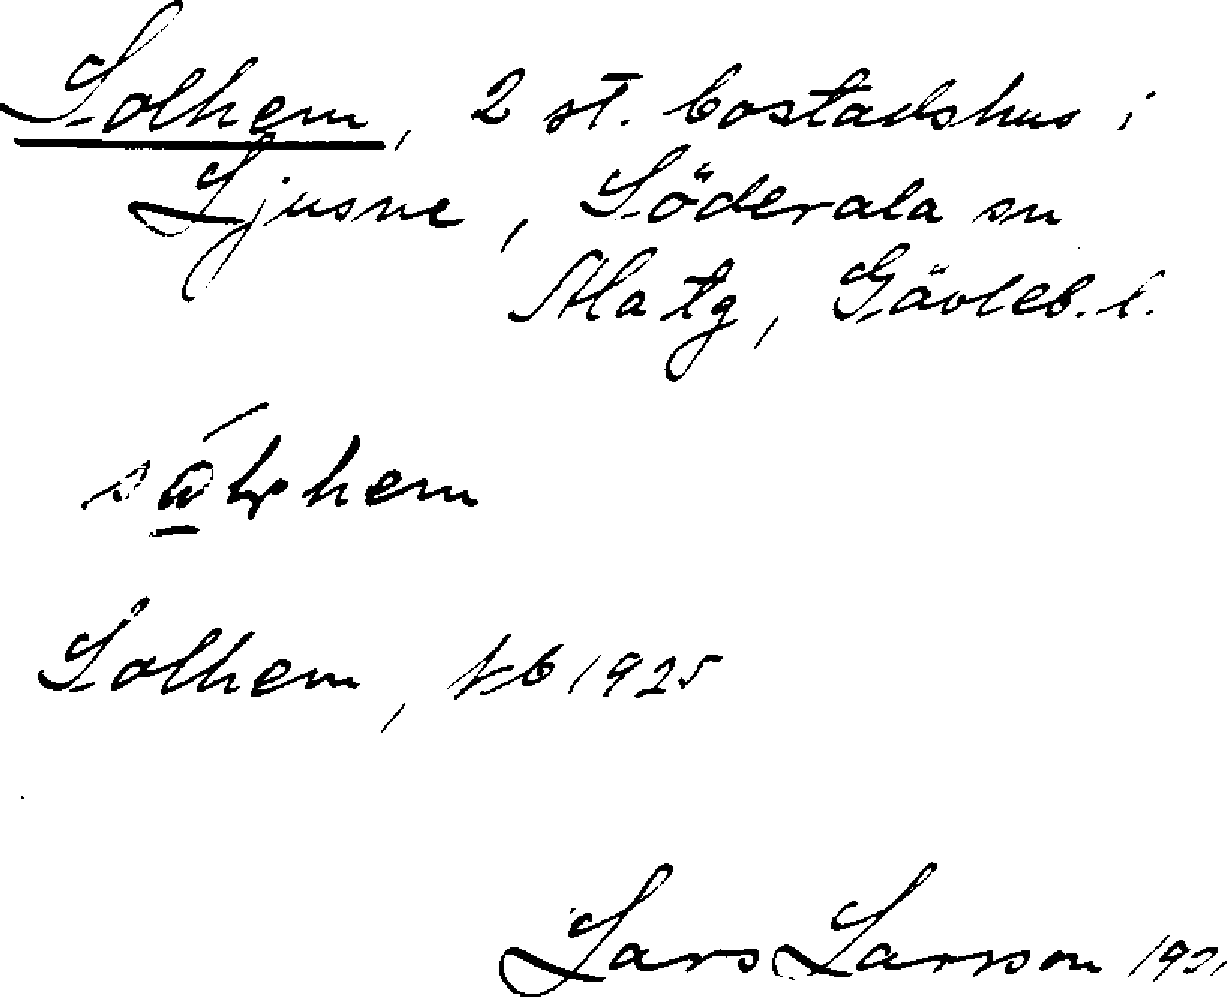 Solhem, 2 st. bostadshus i
Ljusne, Söderala sn
Ala tg, Gävleb. l.
hem
Solhem, kb 1925
Lars Larsson